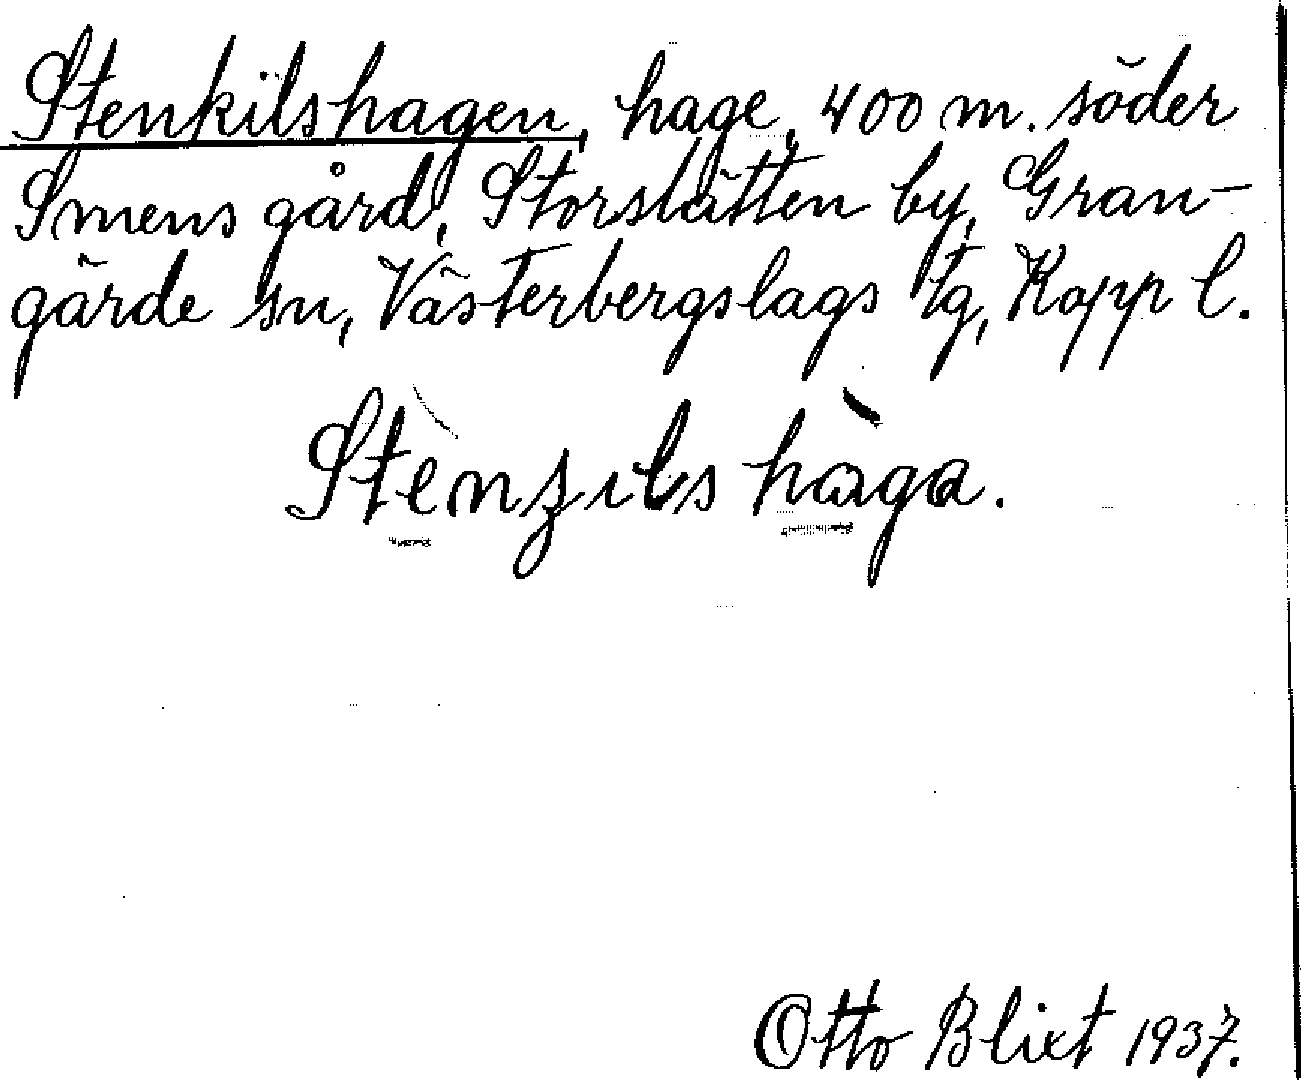 Stenkilshagen, hage, 400 m. söder
Smens gård, Storslätten by, Gran-
gärde sn, Västerbergslags tg, Kopp l.
Stènzils hàga.
Otto Blixt 1937.